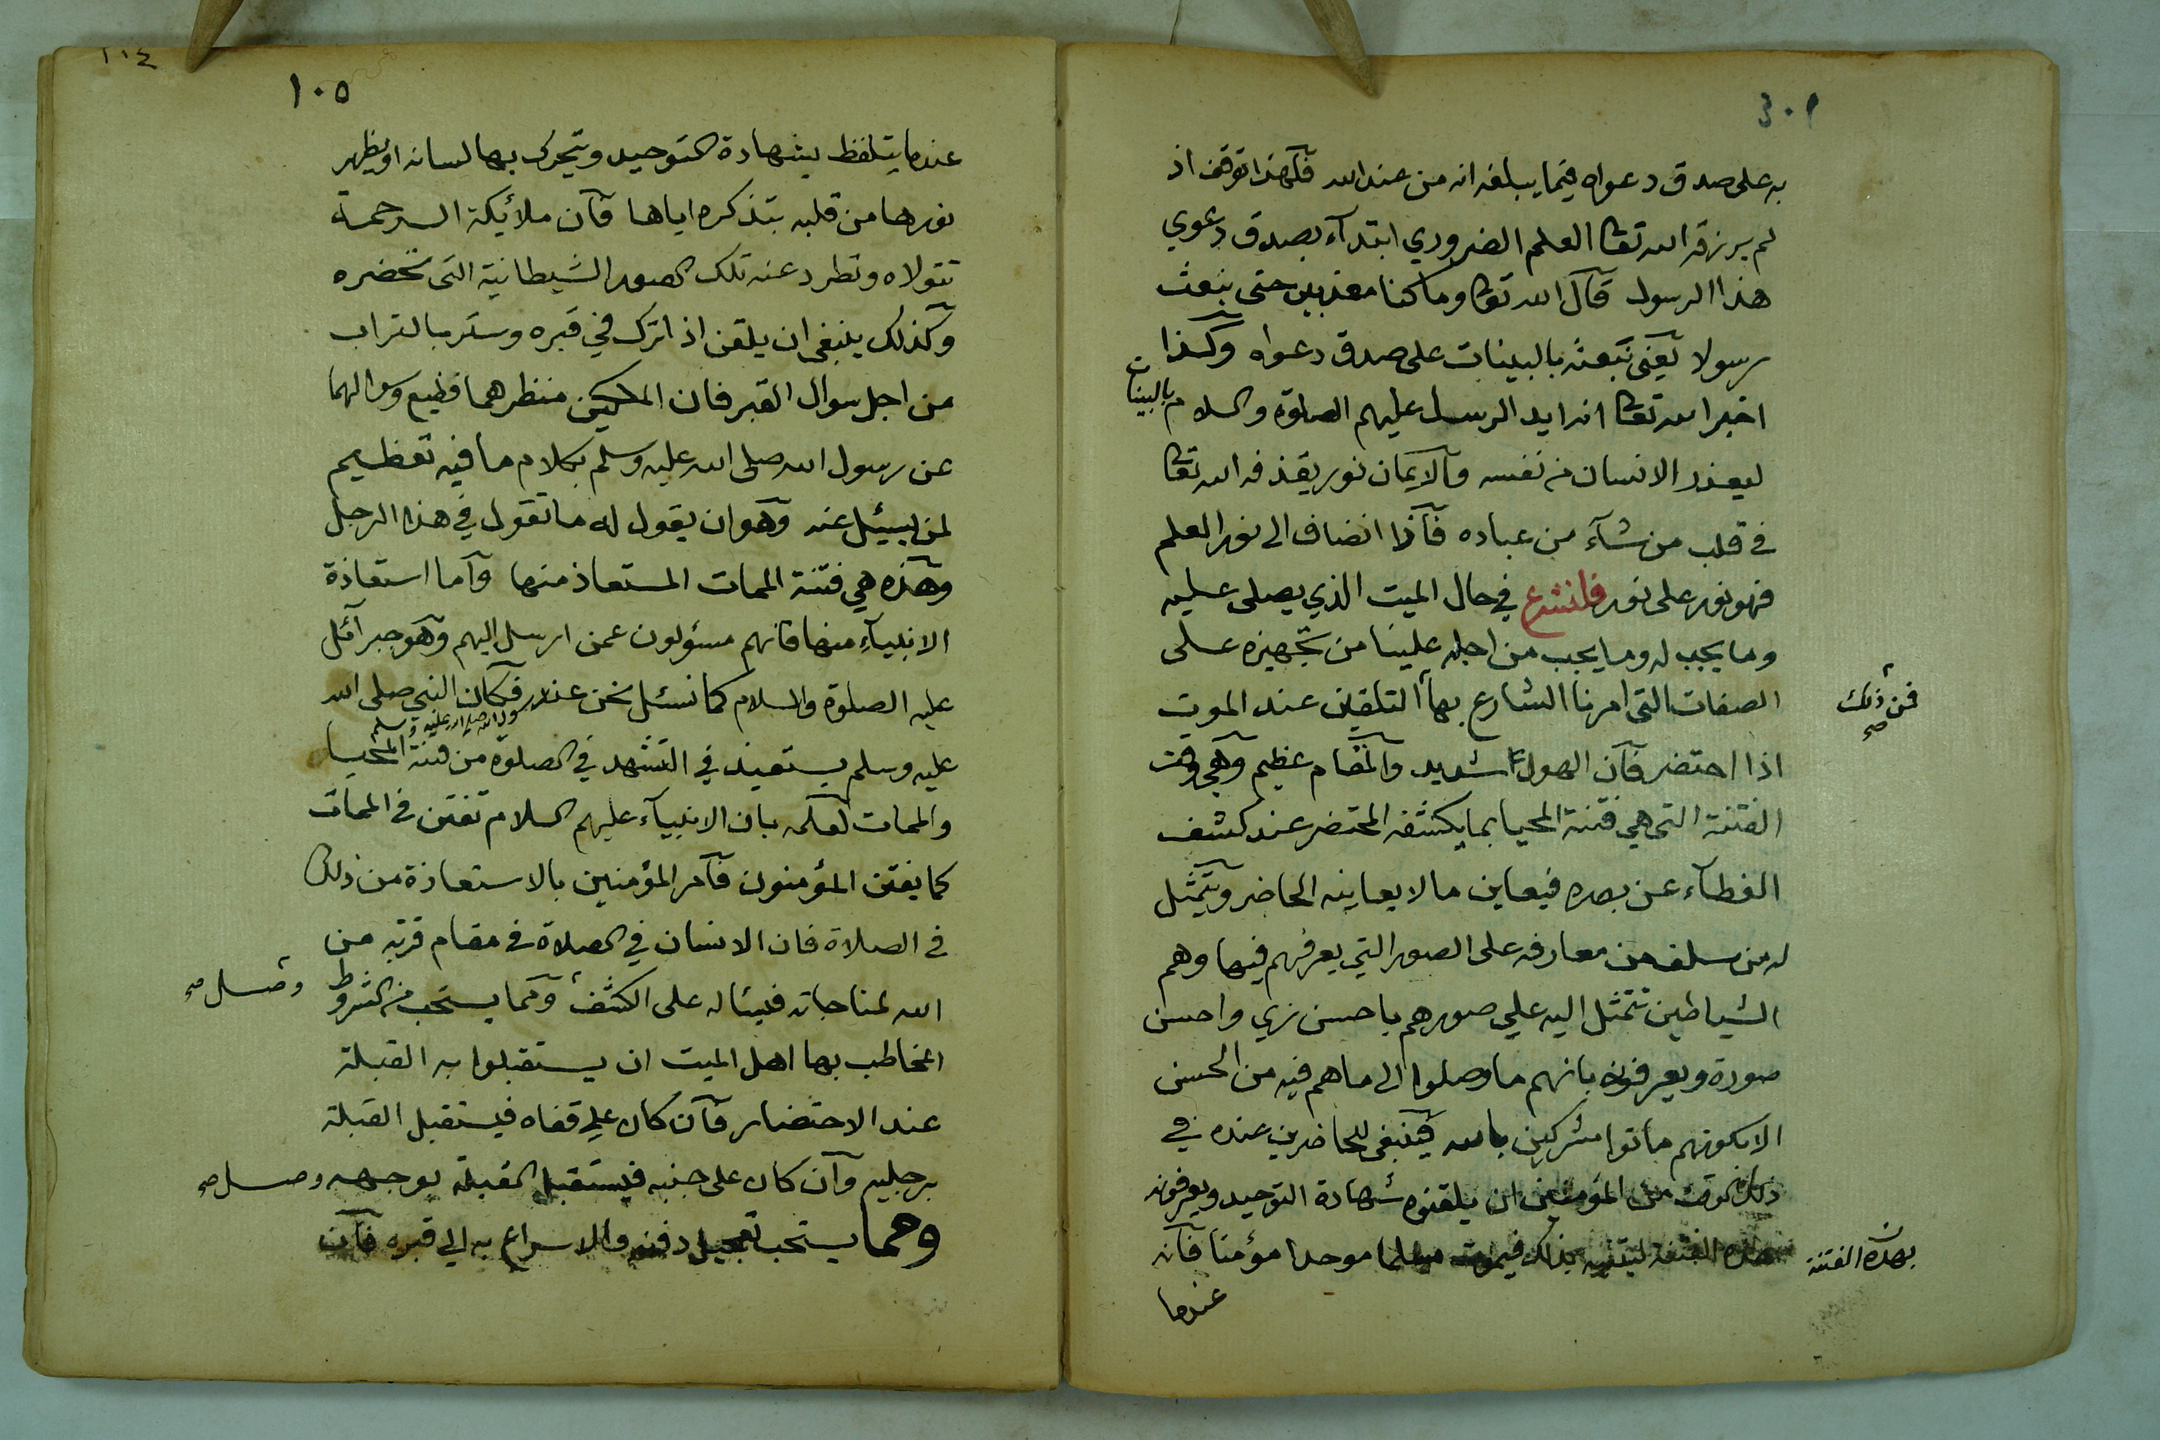 به على صدق دعواه فيما يبلغه انه من عند الله فلهذا توقف اذ
لم يرزقه الله تعا العلم الضروري ابتدآء بصدق دعوي
هذا الرسول قال الله تعا وما كنا معذبين حتى نبعث
رسولا يعني نبعثه بالبينات على صدق دعواه وكذا
اخبر الله تعا انه ايد الرسل عليهم الصلوة والسلام بالبينات
ليعذر الانسان من نفسه والايمان نور يقذفه الله تعا
في قلب من شآء من عباده فاذا انضاف الى نور العلم
فهو نور على نور فلنشرع في حال الميت الذي يصلى عليه
وما يجب له وما يجب من اجله علينا من تجهيزه على
الصفات التي امرنا الشارع بها التلقين عند الموت
فمن ذلك صح
اذا احتضر فان الهول شديد والمقام عظيم وهي وقت
الفتنة التي هي فتنة المحيا بما يكشفه المحتضر عند كشف
الغطآء عن بصره فيعاين ما لا يعاينه الحاضر ويتمثل
له من سلف من معارفه على الصور التي يعرفهم فيها وهم
الشياطين تتمثل اليه علي صورهم باحسن زي واحسن
صورة ويعرفونه بانهم ما وصلوا الى ما هم فيه من الحسن
الا بكونهم ماتوا مشركين بالله فينبغي للحاضرين عنده في
ذلك الوقت من المؤمنين ان يلقنوه شهادة التوحيد ويعرفونه
هذه الفتنة ليتنبه بذلك فيموت مسلما موحدا مؤمنا فانه
بهذه الفتنة
عندما
١٠٥
عندما يتلفظ بشهادة التوحيد ويتحرك بها لسانه او يظهر
نورها من قلبه بتذكره اياها فان ملائكة الرحمة
تتولاه وتطرد عنه تلك الصور الشيطانية التي تحضره
وكذلك ينبغي ان يلقن اذا ترك في قبره وستر بالتراب
من اجل سوال القبر فان الملكين منظرهما فظيع وسوالهما
عن رسول الله صلى الله عليه وسلم بكلام ما فيه تعظيم
لمن يسئل عنه وهو ان يقول له ما تقول في هذا الرجل
وهذه هي فتنة الممات المستعاذ منها واما استعاذة
الانبيآء منها فانهم مسئولون عمن ارسل اليهم وهو جبرائل
عليه الصلوة والسلام كما نسئل نحن عنه فكان النبي صلى الله
عليه وسلم يستعيذ في التشهد في الصلوة من فتنة المحيا
والممات لعلمه بان الانبيآء عليهم السلام تفتن في الممات
كما يفتن المؤمنون فامر المؤمنين بالاستعاذة من ذلك
في الصلاة فان الانسان في الصلاة في مقام قربة من
الله لمناجاته فيسئاله على الكشف ومما يستحب من الشروط
وصل صح
المخاطب بها اهل الميت ان يستقبلوا به القبلة
عند الاحتضار فان كان علي قفاه فيستقبل القبلة
برجليه وان كان على جنبه فيستقبل القبلة بوجهه وصل صح
ومما يستحب تعجيل دفنه والاسراع به الي قبره فان